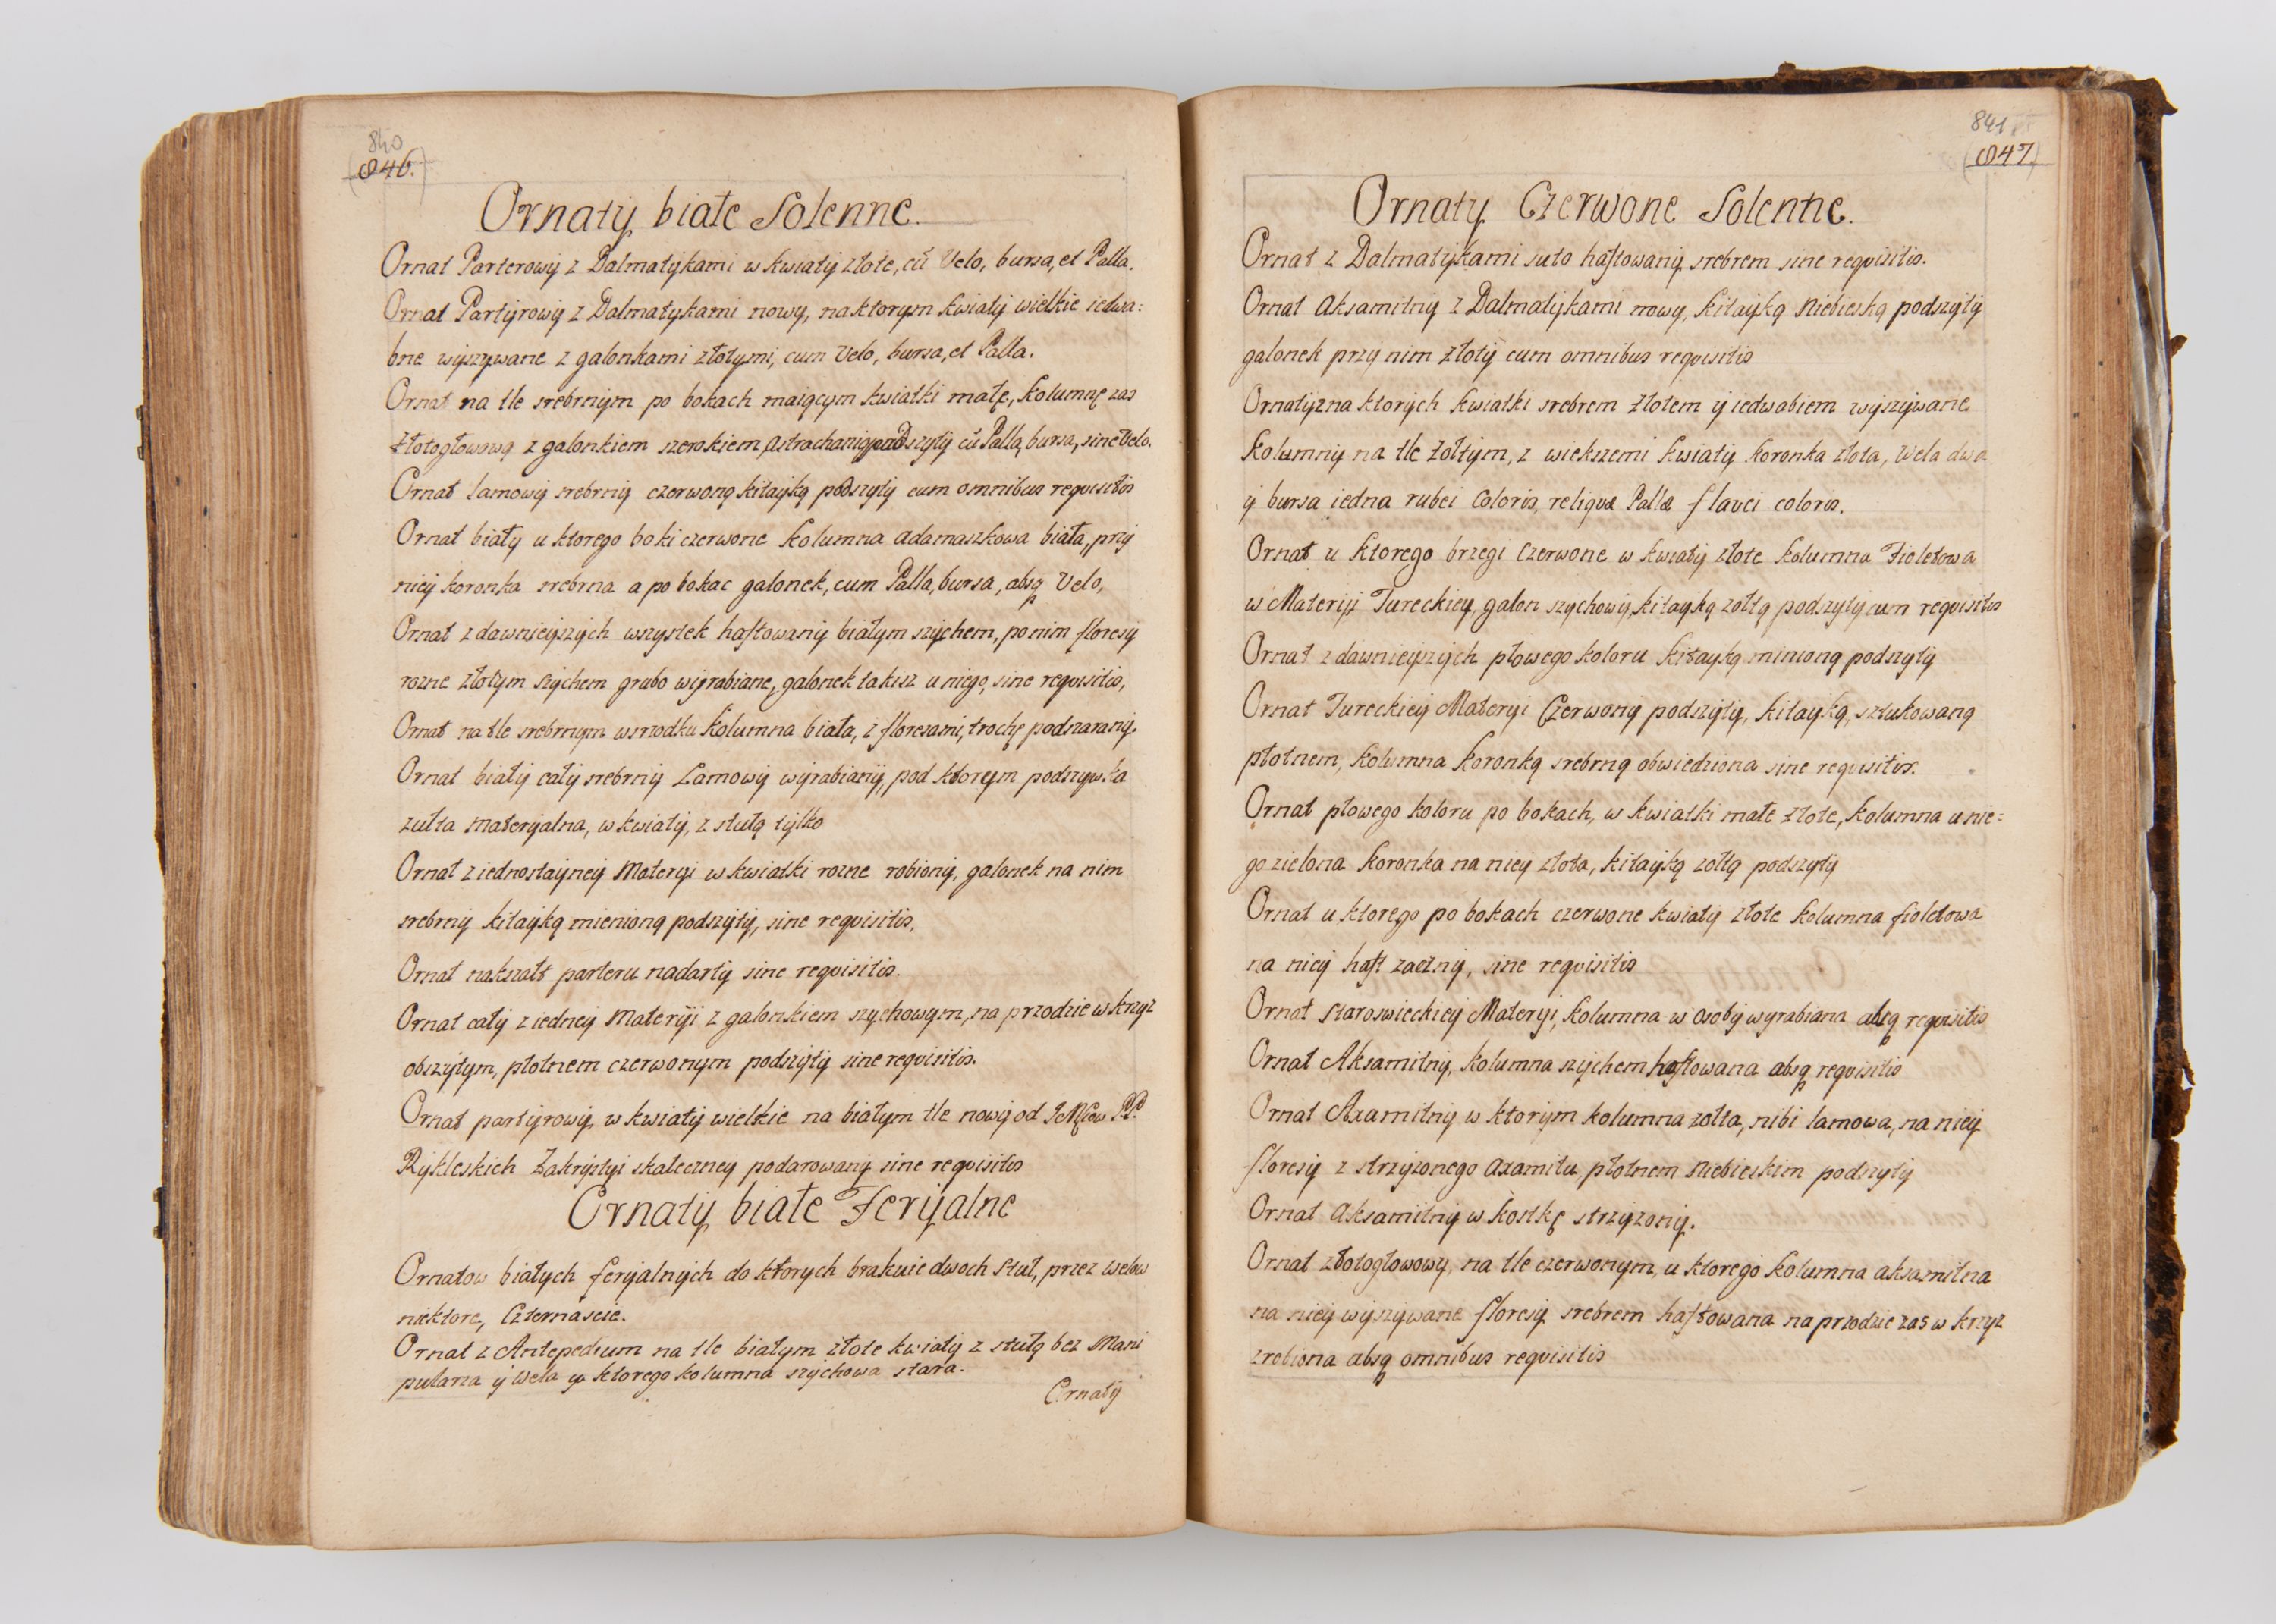 840
846.
Ornaty białe Solenne.
Ornat Parterowy z Dalmatykami w kwiaty złote, cũ Velo, bursa, et Palla.
Ornat Partyrowy z Dalmatykami nowy, na ktorym kwiaty wielkie iedwa:
bne wyszywane z galonkami złotymi, cum Velo, bursa, et Palla.
Ornat na tle srebrnym po bokach maiącym kwiatki małe, kolumnę zas
złotogłowową z galonkiem szerokiem Astrachanią podszyty cũ Palla, bursa, sine Velo.
Ornat lamowy srebrny czerwoną kitayką podszyty cum omnibus requisitis
Ornat biały u ktorego boki czerwone kolumna adamaszkowa biała, przy
niey koronka srebrna a po bokac galonek, cum Palla, bursa, absq Velo,
Ornat z dawnieyszych wszystek haftowany białym szychem, po nim floresy
rozne złotym szychem grubo wyrabiane, galonek takisz u niego, sine requisitis,
Ornat na tle srebrnym wsrzodku kolumna biała, z floresami, trochę podszarany.
Ornat biały cały srebrny Lamowy wyrabiany, pod ktorym podszywka
zułta materyalna, w kwiaty, z stułą tylko
Ornat z iednostayney Materyi w kwiatki rozne robiony, galonek na nim
srebrny kitayką mienioną podszyty, sine requisitis,
Ornat nakszałt parteru nadarty sine requisitis.
Ornat cały z iedney Materyi z galonkiem szychowym, na przodzie w krzyz
obszytym, płotnem czerwonym podszyty sine requisitis.
Ornat partyrowy w kwiaty wielkie na białym tle nowy od PP.
Zakrystyi skateczney podarowany sine requisitis
Ornaty białe Feryalne
Ornatow białych feryalnych do ktorych brakuie dwoch Stuł, przez welow
niektore, Czternascie.
Ornat z Antepedium na tle białym złote kwiaty z stułą bez Mani
pularza y Wela y ktorego kolumna szychowa stara.
Ornaty
841
847.
Ornaty Czerwone Solenne.
Ornat z Dalmatykami suto haftowany srebrem sine requisitis.
Ornat Aksamitny z Dalmatykami nowy, kitayką Niebieską podszyty
galonek przy nim złoty cum omnibus requisitis
Ornaty2 na ktorych kwiatki srebrem złotem y iedwabiem wyszywane
kolumny na tle żołtym, z wiekszemi kwiaty koronka złota, Wela dwa
y bursa iedna rubei Coloris, reliquæ Pallæ flavei coloris.
Ornat u ktorego brzegi Czerwone w kwiaty złote kolumna Fioletowa
w Materyi Tureckiey, galon szychowy, kitayką zołtą podszyty cum requisitis
Ornat z dawnieyszych płowego koloru kitayką minioną podszyty
Ornat Tureckiey Materyi Czerwony podszyty, kitayką, sztukowaną
płotnem, kolumna koronką srebrną obwiedziona sine requisitis.
Ornat płowego koloru po bokach, w kwiatki małe złote, kolumna u nie=
go zielona koronka na niey złota, kitayką zołtą podszyty
Ornat u ktorego po bokach czerwone kwiaty złote kolumna fioletowa
na niey haft zacżny, sine requisitis
Ornat staroswieckiey Materyi, kolumna w osoby wyrabiana absq requisitis
Ornat Aksamitny, kolumna szychem haftowana absq requisitis
Ornat Axamitny w ktorym kolumna zołta, nibi lamowa, na niey
floresy z strzyzonego axamitu płotnem Niebieskim podszyty
Ornat aksamitny w kostkę strzyzony.
Ornat złotogłowowy, na tle czerwonym, u ktorego kolumna aksamitna
na niey wyszywane floresy srebrem haftowana na przodzie zas w krzyz
zrobiona absq omnibus requisitis